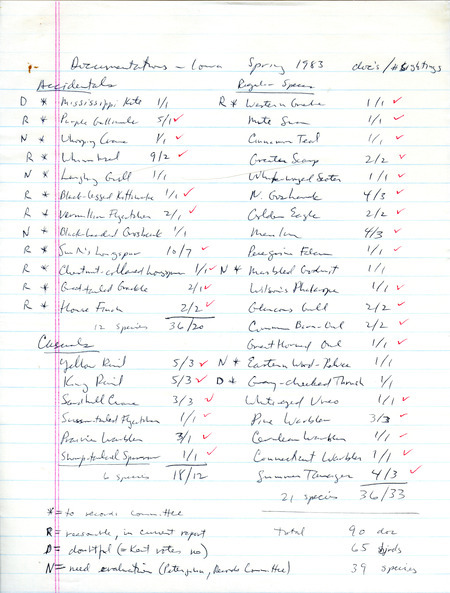 Documentations - Iowa Spring 1983 doc's/# Sightings
Accidentals
D * Mississippi Kite 1/1
R * Purple Gallinule 5/1 ✓
N * Whooping Crane 1/1 ✓
R * Whimbrel 9/2 ✓
N * Laughing Gull 1/1
R * Black-legged Kittiwake 1/1 ✓
R * Vermilion Flycatcher 2/1 ✓
N * Black-headed Grosbeak 1/1
R * Smith's Longspur 10/7 ✓
R * Chestnut-collared Longspur 1/1 ✓
R * Great-tailed Grackle 2/1 ✓
R * House Finch 2/2 ✓
12 species 36/20
Casuals
Yellow Rail 5/3 ✓
King Rail 5/3 ✓
Sandhill Crane 3/3 ✓
Scissor-tailed Flycatcher 1/1 ✓
Prairie Warbler 3/1 ✓
Sharp-tailed Sparrow 1/1 ✓
6 species 18/12
Regular Species
R * Western Grebe 1/1 ✓
Mute Swan 1/1 ✓
Cinnamon Teal 1/1 ✓
Greater Scaup 2/2 ✓
White-winged Scoter 1/1 ✓
N. Goshawk 4/3 ✓
Golden Eagle 2/2 ✓
Merlin 4/3 ✓
Peregrine Falcon 1/1 ✓
N * Marbled Godwit 1/1
Wilson's Phalarope 1/1 ✓
Glaucous Gull 2/2 ✓
Common Barn-Owl 2/2 ✓
Great Horned Owl 1/1 ✓
N * Eastern Wood-Pewee 1/1
D * Gray-cheeked Thrush 1/1
White-eyed Vireo 1/1 ✓
Pine Warbler 3/3 ✓
Cerulean Warbler 1/1 ✓
Connecticut Warbler 1/1 ✓
Summer Tanager 4/3 ✓
21 species 36/33
* = to records committee
R = reasonable, in current report
D = doubtful (= Kent votes no)
N = need evaluation (Petersen, Records Committee)
total 90 doc
65 birds
39 species